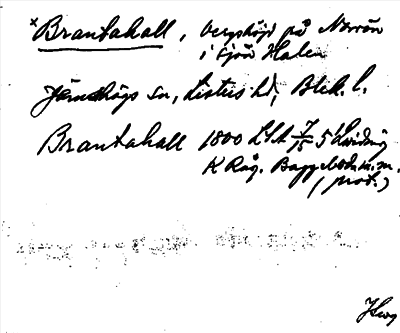 *Brantahall, berghöjd på Norrön
i sjön Halen
Jämshögs sn, Listers hd, Blek. l.
Brantahall 1800 LSA 7/15 5
K Råg. Baggeboda m.m.
(prot.)